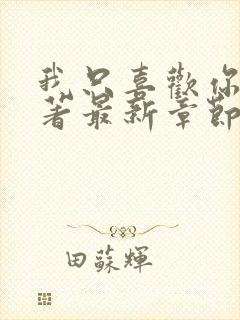 我只喜歡你
著最新章節
田蘇輝